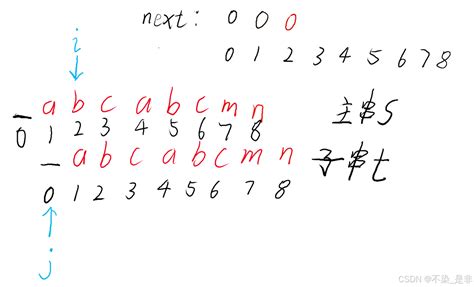 next: 0 0 0
0 1 2 3 4 5 6 7 8
i
_ a b c a b c m n 主串S
0 1 2 3 4 5 6 7 8
_ a b c a b c m n 子串t
0 1 2 3 4 5 6 7 8
j
CSDN @不染_是非